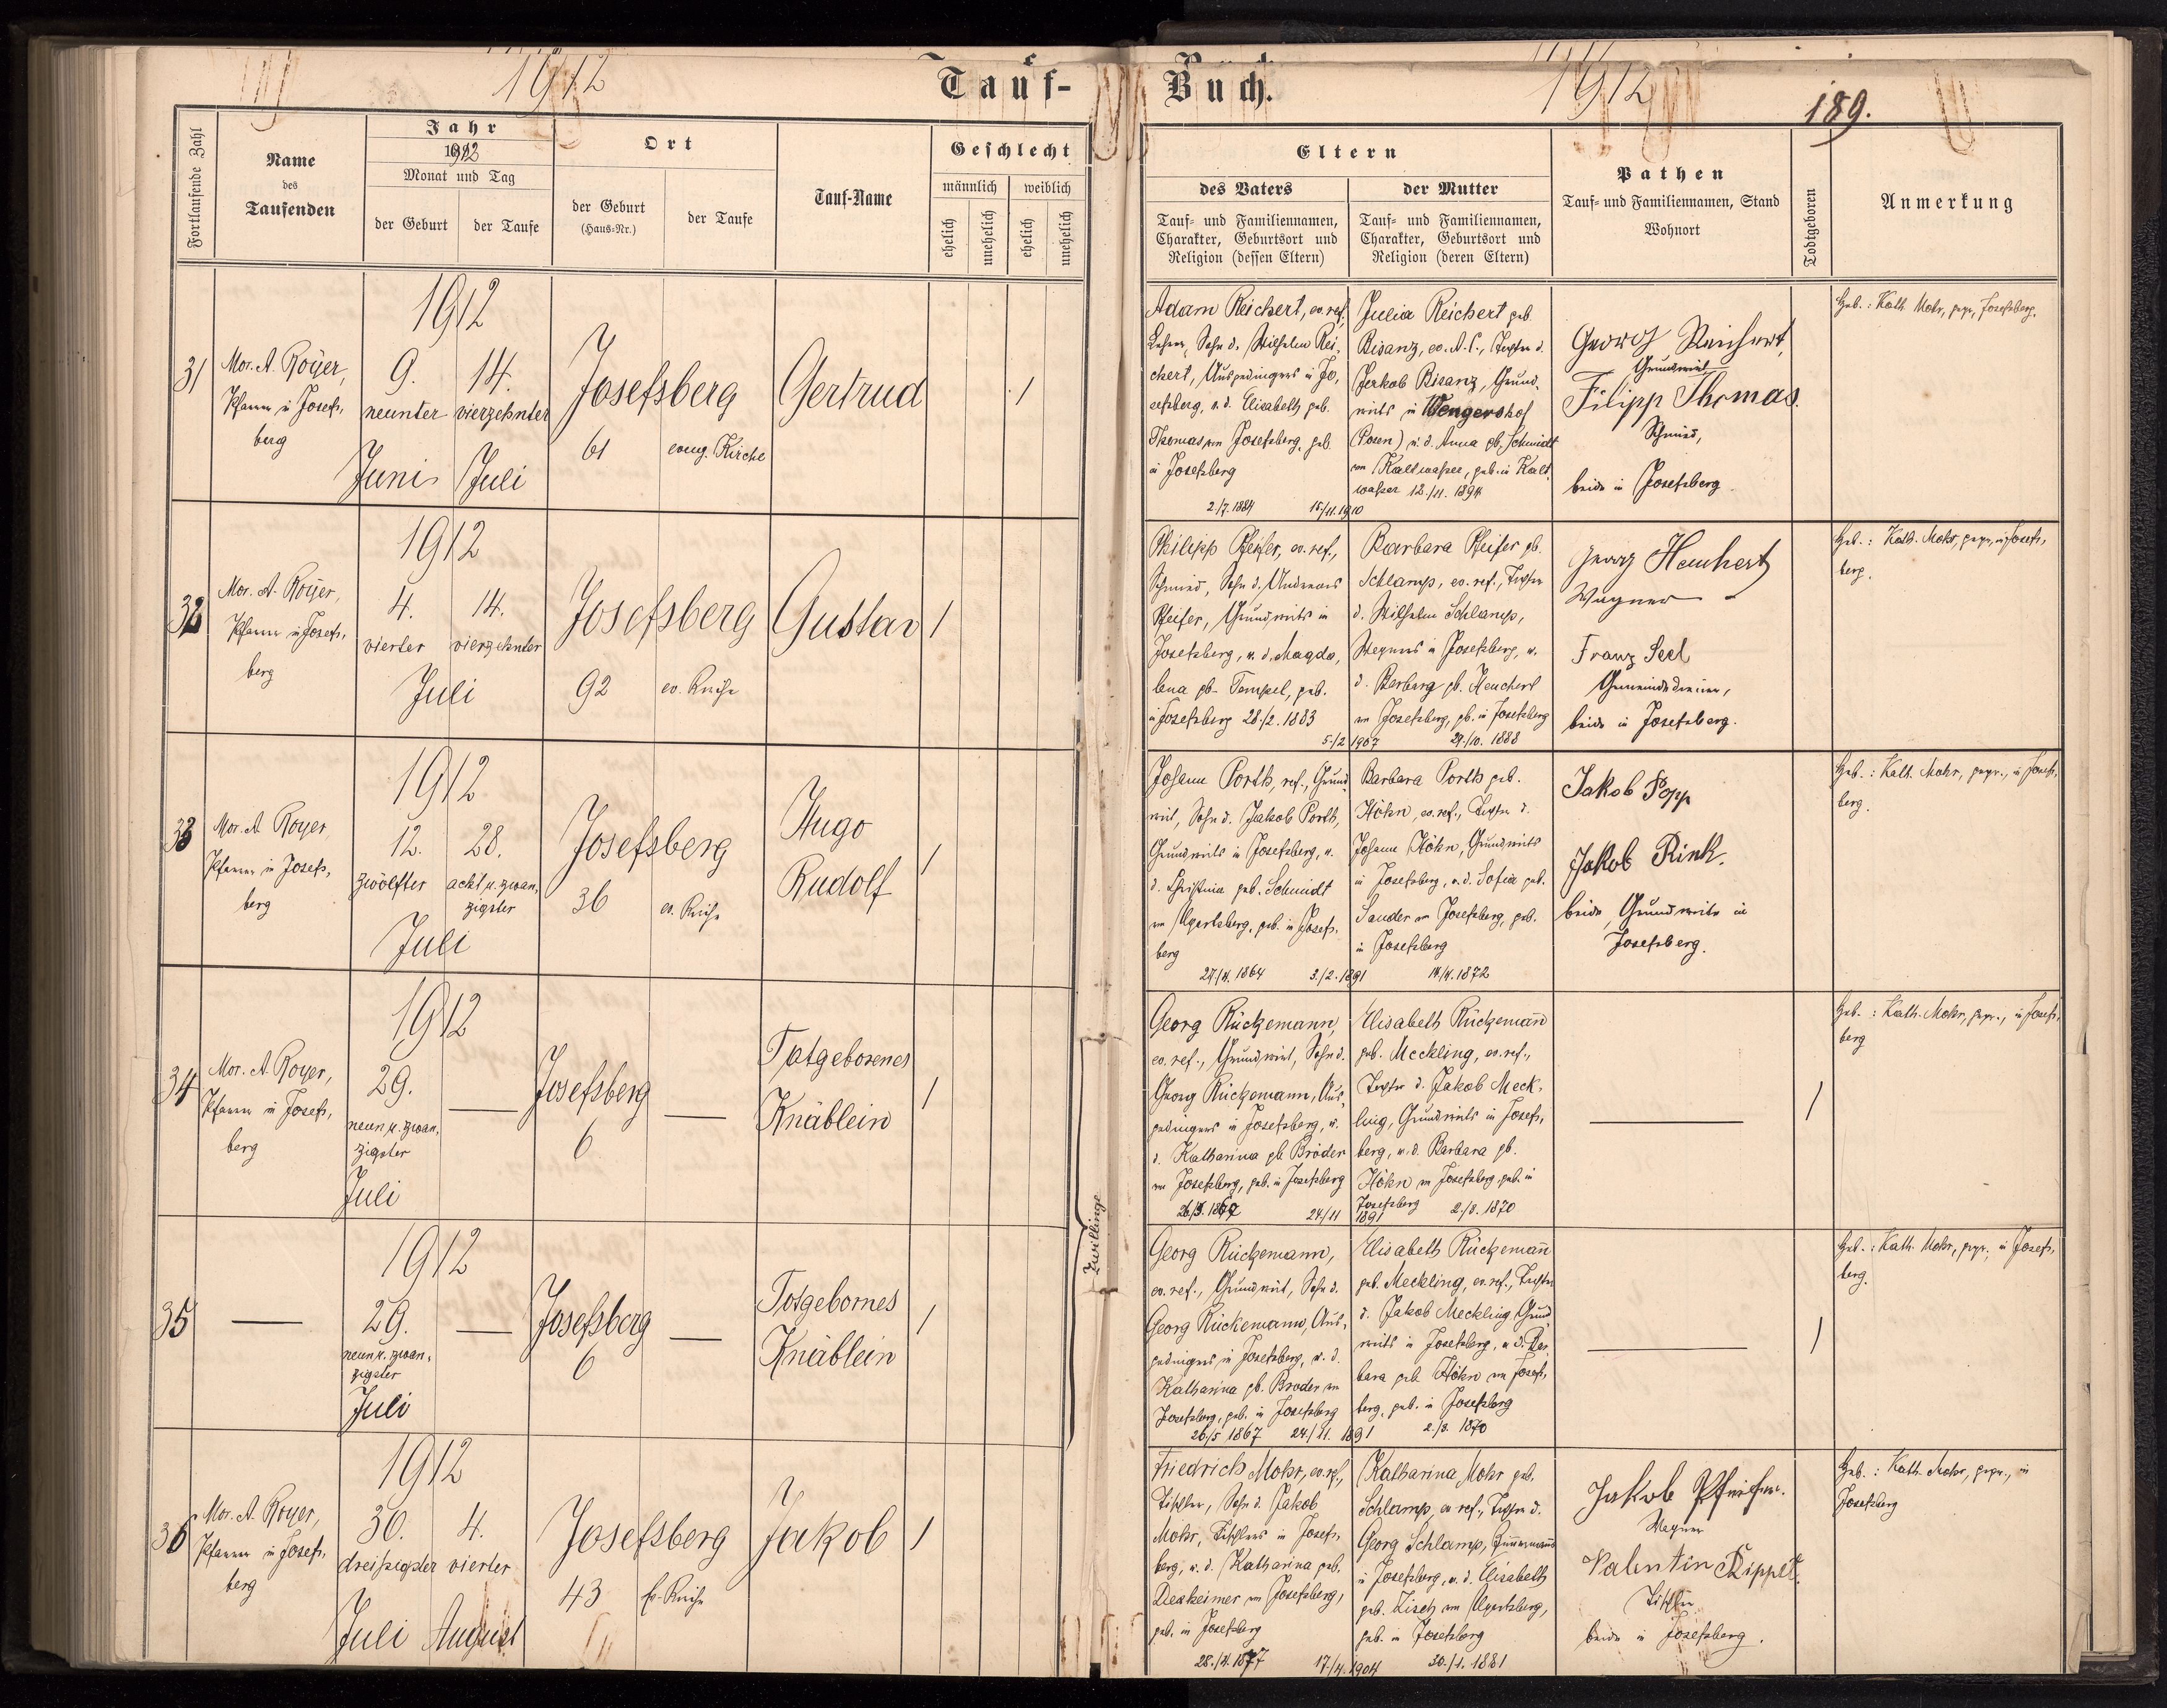 1912
Tauf-
Buch.
1912
189.
Fortlaufende Zahl
Name
des
Taufenden
Jahr
1912
Monat und Tag
der Geburt
der Taufe
Ort
der Geburt
(Haus-Nr.)
der Taufe
Tauf-Name
Geschlecht
männlich
weiblich
ehelich
unehelich
ehelich
unehelich
Eltern
des Vaters
Tauf- und Familiennamen,
Charakter, Geburtsort und
Religion (dessen Eltern)
der Mutter
Tauf- und Familiennamen,
Charakter, Geburtsort und
Religion (deren Eltern)
Pathen
Tauf- und Familiennamen, Stand
Wohnort
Todtgeboren
Anmerkung
31
Mor. A. Royer,
Pfarrer in Josefs-
berg
1912
9.
neunter
Juni
14.
vierzehnter
Juli
Josefsberg
61
evang. Kirche
Gertrud
1
Adam Reichert, ev. ref.,
Lehrer, Sohn d. Wilhelm Rei-
chert, Ausgedingers in Jo-
sefsberg, u. d. Elisabeth geb.
Thomas von Josefsberg, geb.
in Josefsberg
2./7. 1884
15/11. 1910
Julia Reichert geb.
Bisanz, ev. A. C., Tochter d.
Jakob Bisanz, Grund-
wirts in Wengershof
(Posen) u. d. Anna gb. Schmidt
von Kaltwasser, geb. in Kalt-
wasser 12./11. 1894
Georg Reichert,
Grundwirt
Filipp Thomas.
Schmied,
beide in Josefsberg
Heb.: Kath. Mohr, gepr., Josefsberg.
32
Mor. A. Royer,
Pfarrer in Josefs-
berg
1912
4.
vierter
14.
vierzehnter
Juli
Josefsberg
92
ev. Kirche
Gustav
1
Philipp Pfeifer, ev. ref.,
Schmied, Sohn d. Andreas
Pfeifer, Grundwirts in
Josefsberg, u. d. Magda-
lena gb. Tempel, geb.
in Josefsberg 28./2. 1883
5./2 1907
Barbara Pfeifer gb.
Schlamp, ev. ref., Tochter
d. Wilhelm Schlamp,
Wagners in Josefsberg, u.
d. Barbara gb. Heuchert
von Josefsberg, gb. in Josefsberg
29./10. 1888
Georg Heuchert
Wagner
Franz Seel
Gemeindediener,
beide in Josefsberg.
Heb.: Kath. Mohr, gepr., in Josefs-
berg.
33
Mor. A. Royer,
Pfarrer in Josefs-
berg
1912
12.
zwölfter
28.
acht u. zwan-
zigster
Juli
Josefsberg
36
ev. Kirche
Hugo
Rudolf
1
Johann Porth, ref., Grund-
wirt, Sohn d. Jakob Porth,
Grundwirts in Josefsberg, u.
d. Christina geb. Schmidt
von Ugartsberg, geb. in Josefs-
berg
27./4. 1864
3./2. 1891
Barbara Porth geb.
Höhn, ev. ref., Tochter d.
Johann Höhn, Grundwirts
in Josefsberg, u. d. Sofia geb.
Sander von Josefsberg, geb.
in Josefsberg
14./4. 1872
Jakob Popp
Jakob Rink.
beide Grundwirte in
Josefsberg.
Heb.: Kath. Mohr, gepr., in Josefs-
berg.
34
Mor. A. Royer,
Pfarrer in Josefs-
berg
1912
29.
neun u. zwan-
zigster
Juli
Josefsberg
6
Totgeborenes
Knäblein
1
Zwillinge
Georg Rückemann,
ev. ref., Grundwirt, Sohn d.
Georg Rückemann, Aus-
gedingers in Josefsberg, u.
d. Katharina gb. Bröder
von Josefsberg, geb. in Josefsberg
26./5. 1867
24/11 1891
Elisabeth Rückemann
geb. Meckling, ev. ref.,
Tochter d. Jakob Meck-
ling, Grundwirts in Josefs-
berg, u. d. Barbara gb.
Höhn von Josefsberg, geb. in
Josefsberg 2./8. 1870
1
Heb.: Kath. Mohr, gepr., in Josefs-
berg
35
1912
29.
neun u. zwan-
zigster
Juli
Josefsberg
6
Totgebornes
Knäblein
1
Georg Rückemann,
ev. ref., Grundwirt, Sohn d.
Georg Rückemann, Aus-
gedingers in Josefsberg, u. d.
Katharina gb. Broder von
Josefsberg, geb. in Josefsberg
26./5 1867 24./11. 1891
Elisabeth Rückemann
geb. Meckling, ev. ref., Tochter
d. Jakob Meckling Grund-
wirts in Josefsberg, u. d. Bar-
bara geb. Höhn von Josefs-
berg, geb. in Josefsberg
2./8. 1870
1
Heb.: Kath. Mohr, gepr., in Josefs-
berg.
36
Mor. A. Royer,
Pfarrer in Josefs-
berg
1912
30.
dreißigster
Juli
4.
vierter
August
Josefsberg
43
ev. Kirche
Jakob
1
Friedrich Mohr, ev. ref.,
Tischler, Sohn d. Jakob
Mohr, Tischlers in Josefs-
berg, u. d. Katharina geb.
Dexheimer von Josefsberg,
geb. in Josefsberg
28./4. 1877
17./4. 1904
Katharina Mohr geb.
Schlamp, ev. ref., Tochter d.
Georg Schlamp, Zimmermanns
in Josefsberg, u. d. Elisabeth
geb. Lisch von Ugartsberg,
geb. in Josefsberg
30./1. 1881
Jakob Pfeifer.
Wagner
Valentin Rippel.
Tischler
beide in Josefsberg.
Heb.: Kath. Mohr, gepr., in
Josefsberg